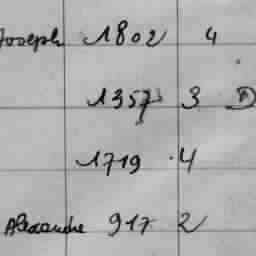 Joseph 1802 4
1357 3 D
1719 4
Alexandre 917 2